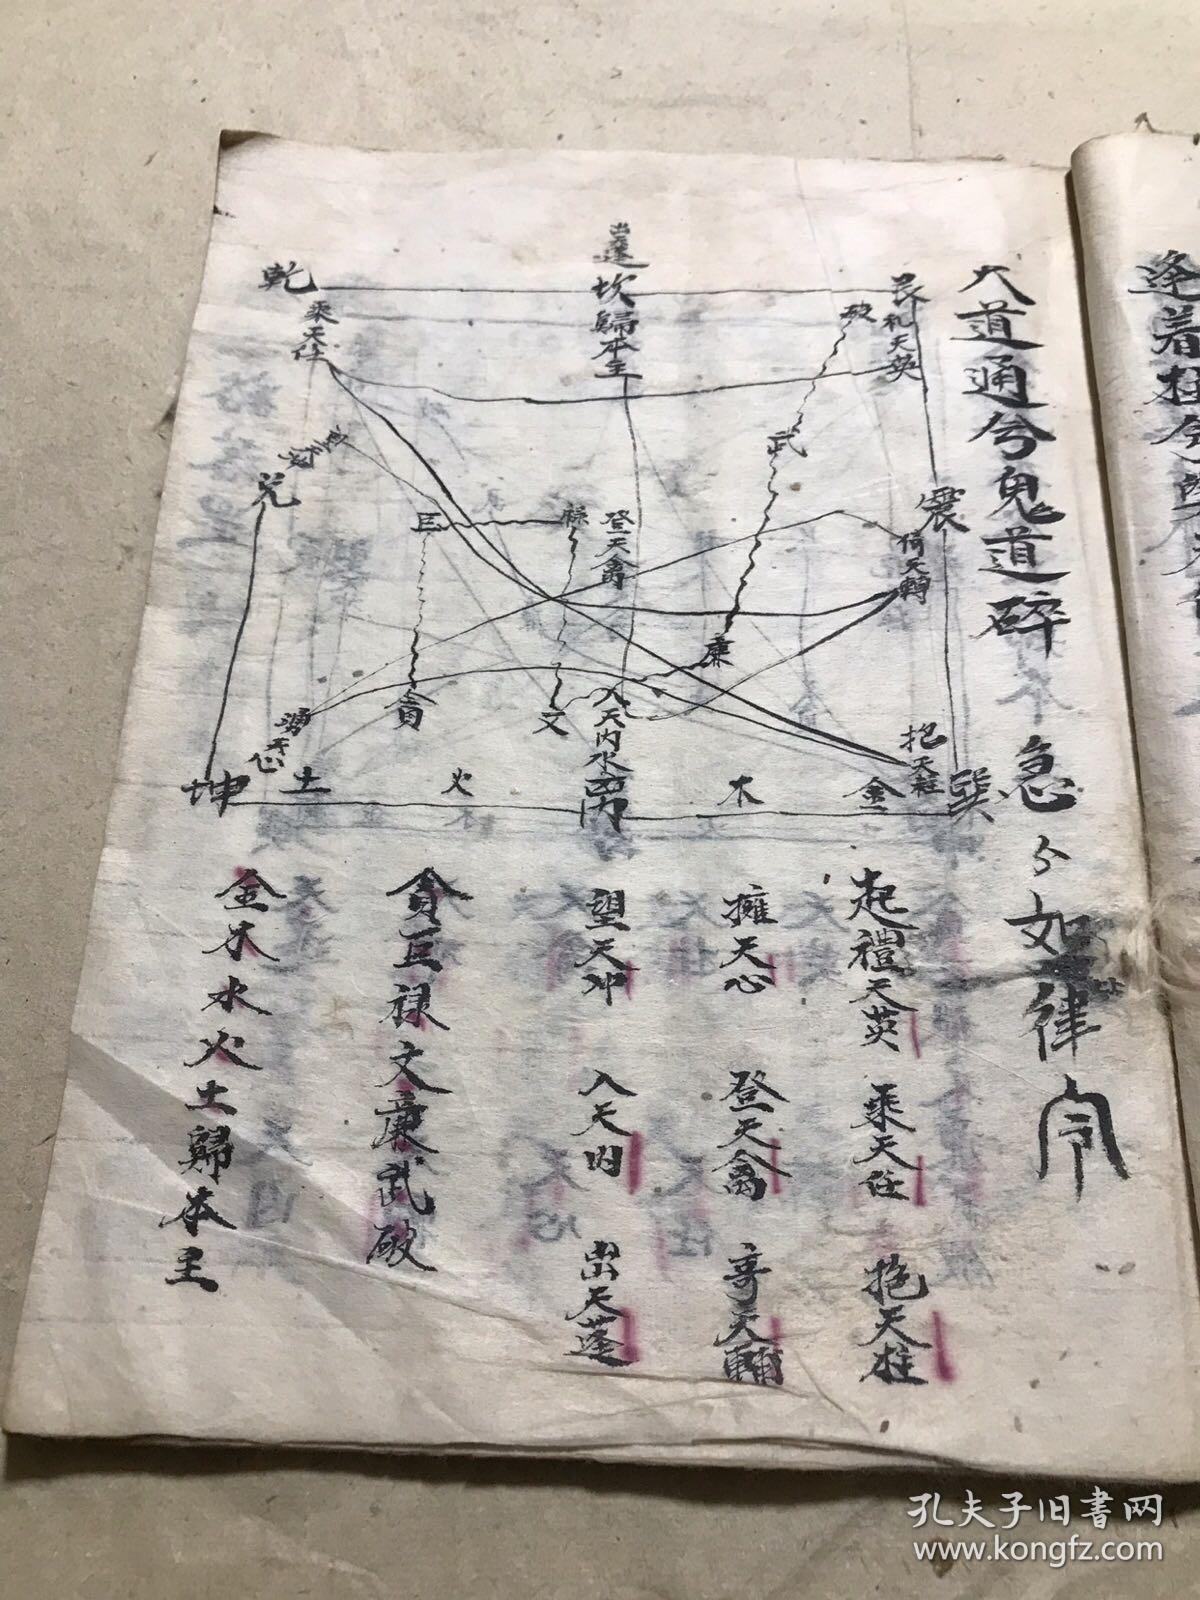 逢着柱兮
大道通兮鬼道碎 急
〻如律令
乾
乘天任
坎歸本主
艮
礼天英
破
武
兌
巨
祿
登天禽
震
倚天輔
廉
貪
文
入天内水
坤
土
火
木
金
抱天柱
巽
起禮天英 乘天任 抱天柱
擁天心 登天禽 哥天輔
望天冲 入天内 出天蓬
貪巨祿文廉武破
金木水火土歸本主
孔夫子旧书网
www.kongfz.com